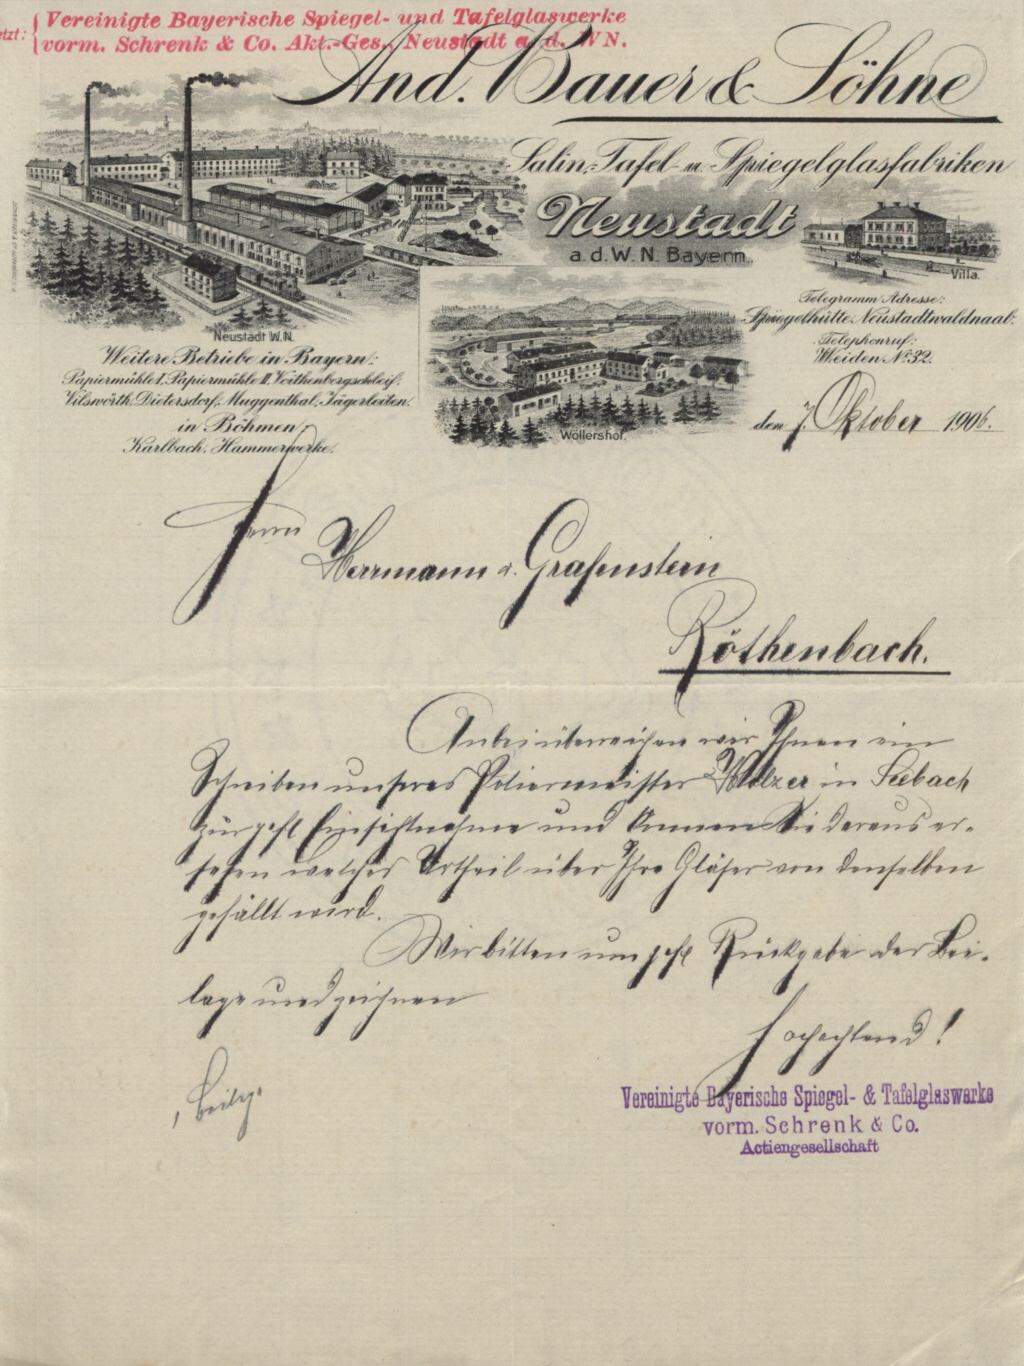 etzt: Vereinigte Bayerische Spiegel- und Tafelglaswerke
vorm. Schrenk & Co. Akt.-Ges., Neustadt a. d. WN.
And. Bauer & Söhne
Salin-, Tafel- u. Spiegelglasfabriken
Neustadt
a. d. W. N. Bayern.
Villa.
Neustadt W.N.
Weitere Betriebe in Bayern:
Papiermühle I, Papiermühle II, Veithenbergschleif,
Vilswörth, Dietersdorf, Muggenthal, Jägerleiten,
in Böhmen,
Karlbach, Hammerwerke.
Wöllershof.
Telegramm Adresse:
Spiegelhütte Neustadtwaldnaab.
Telephonruf:
Weiden No. 32.
den 7. Oktober 1906.
Herrn
Herrmann v. Grafenstein
Röthenbach.
Anbei überreichen wir Ihnen ein
Schreiben unseres Poliermeister Holzer in Seebach
zur gefl Einsichtnahme und können Sie daraus er-
sehen welches Urtheil über Ihre Gläser von denselben
gefällt wird.
Wir bitten um gefl Rückgabe der Bei-
lage und zeichnen
Hochachtend!
Vereinigte Bayerische Spiegel- & Tafelglaswerke
vorm. Schrenk & Co.
Actiengesellschaft
1 Beilg.